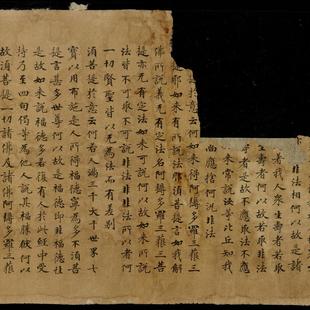 非法相何以故是諸
著我人衆生壽者若取
生壽者何以故若取非法
者是故不應取法不應
來常說汝等比丘知我
尚應捨何況非法
於意云何如來得阿耨多羅三藐三
提耶如來有所說法耶須菩提言如我解
佛所說義无有定法名阿耨多羅三藐三菩
提亦无有定法如來可說何以故如來所說
法皆不可取不可說非法非非法所以者何
一切賢聖皆以无為法而有差別
須菩提於意云何若人滿三千大千世界七
寶以用布施是人所得福德寧為多不須菩
提言甚多世尊何以故是福德即非福德性
是故如來說福德多若復有人於此經中受
持乃至四句偈等為他人說其福勝彼何以
故須菩提一切諸佛及諸佛阿耨多羅三藐